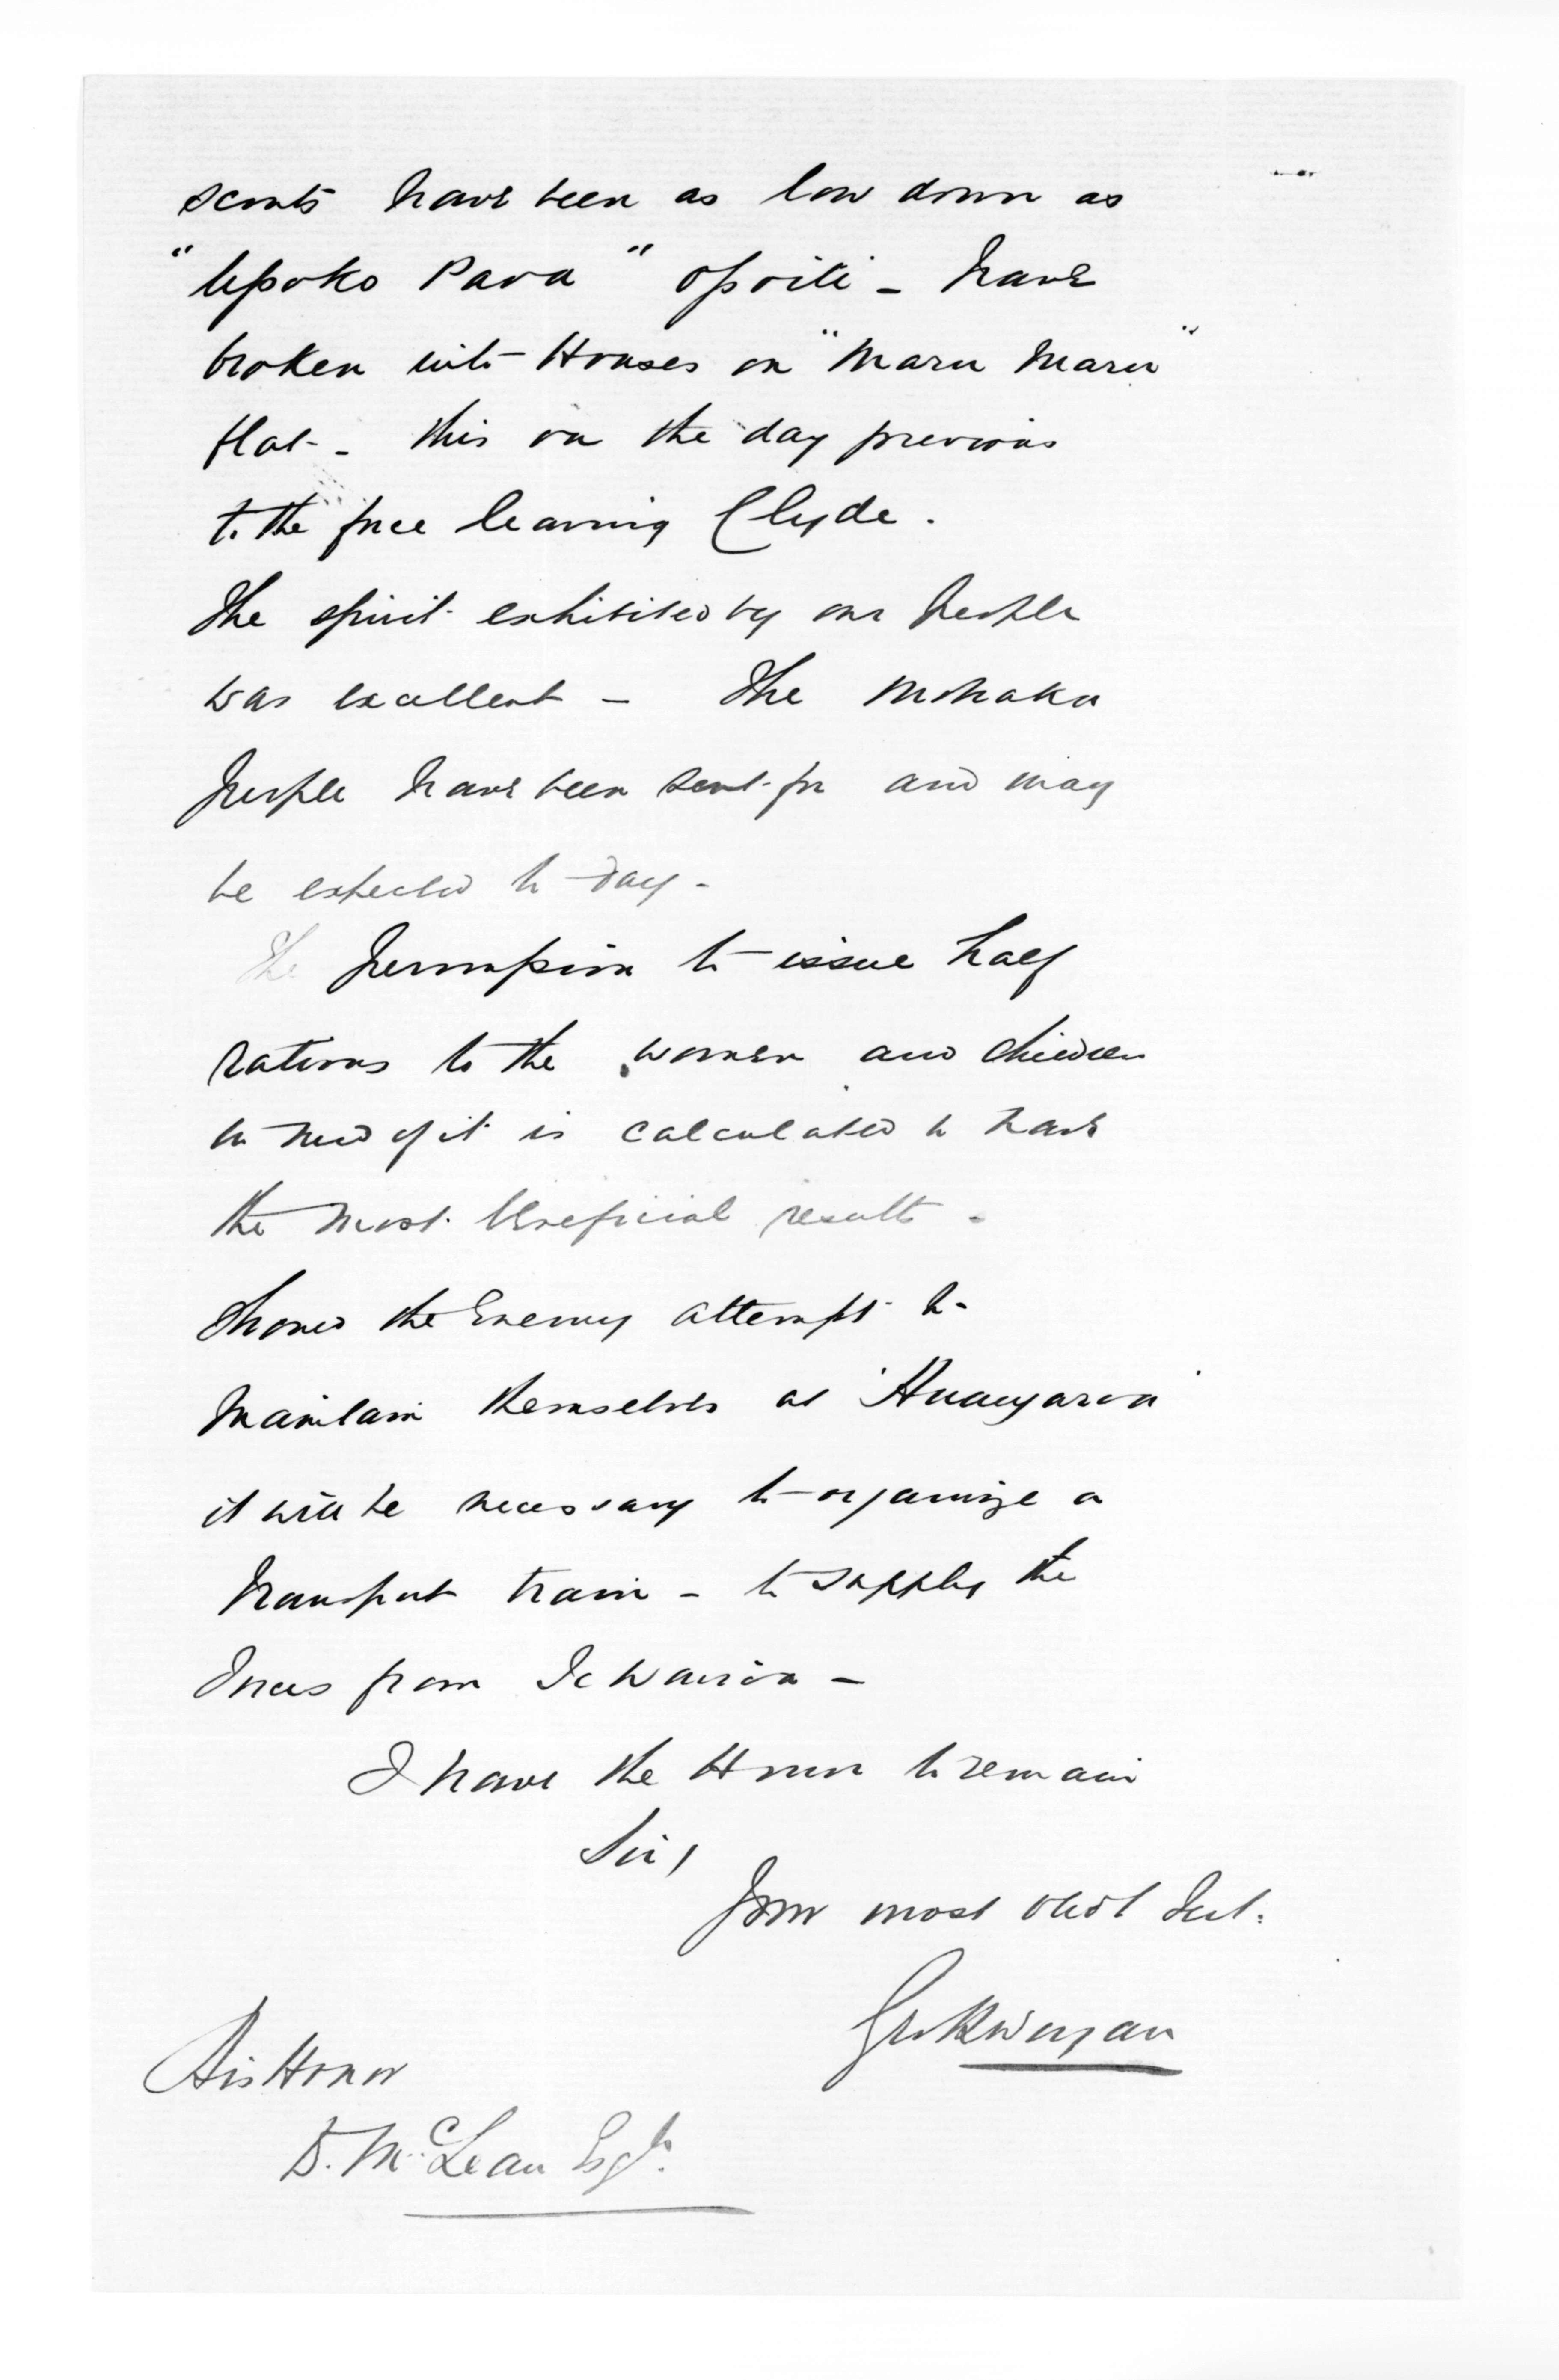 scouts have been as low down as
"Upoko Pava" opoiti - have
broken into Houses on "Maru Maru"
flat - this on the day previous
to the force leaving Clyde.
The spirit exhibited by our people
was excellent - The Mohaka
people have been sent for and may
be expected to day -
The permission to issue half
rations to the women and children
in need of it is calculated to have
the most beneficial results -
Should the Enemy attempt to
maintain themselves at
it will be necessary to organize a
transport train - to supply the
Forces from Te Wairoa -
I have the Honor to remain
Sir,
Your most obdt Svt.
His Honor
D. McLean Esqr.